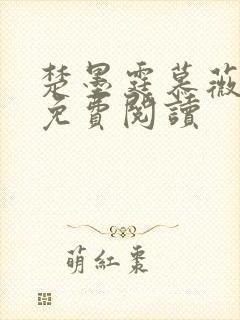 楚墨霆慕薇
免費閱讀
萌紅棗